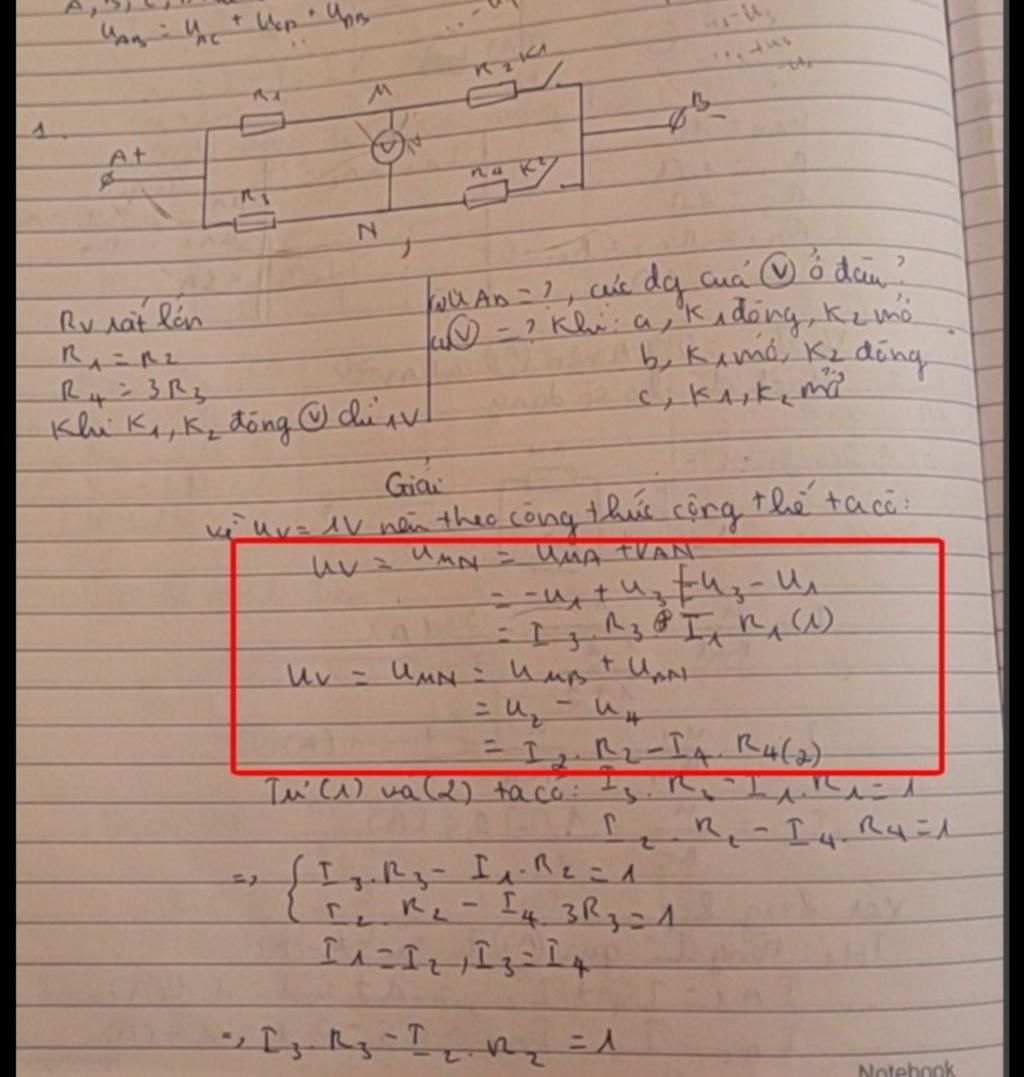 A, B, C,
U_AB = U_AC + U_CD + U_DB
R1 M R2 K1
1.
A+ V B-
R3 N R4 K2
Rv rất lớn
R1 = R2
R4 = 3R3
Khi K1, K2 đóng Ⓥ chỉ 1V
U_AB = ?, cực dg của Ⓥ ở đâu?
Ⓥ = ? Khi: a, K1 đóng, K2 mở
b, K1 mở, K2 đóng
c, K1, K2 mở
Giải
Vì Uv = 1V nên theo công thức cộng thế ta có:
Uv = U_MN = U_MA + U_AN
= -U1 + U3 = U3 - U1
= I3.R3 - I1 R1 (1)
Uv = U_MN = U_MB + U_BN
= U2 - U4
= I2.R2 - I4.R4 (2)
Từ (1) và (2) ta có: I3.R3 - I1.R1 = 1
I2.R2 - I4.R4 = 1
=> { I3.R3 - I1.R2 = 1
I2.R2 - I4.3R3 = 1
I1 = I2, I3 = I4
=> I3.R3 - I2.R2 = 1
Notebook